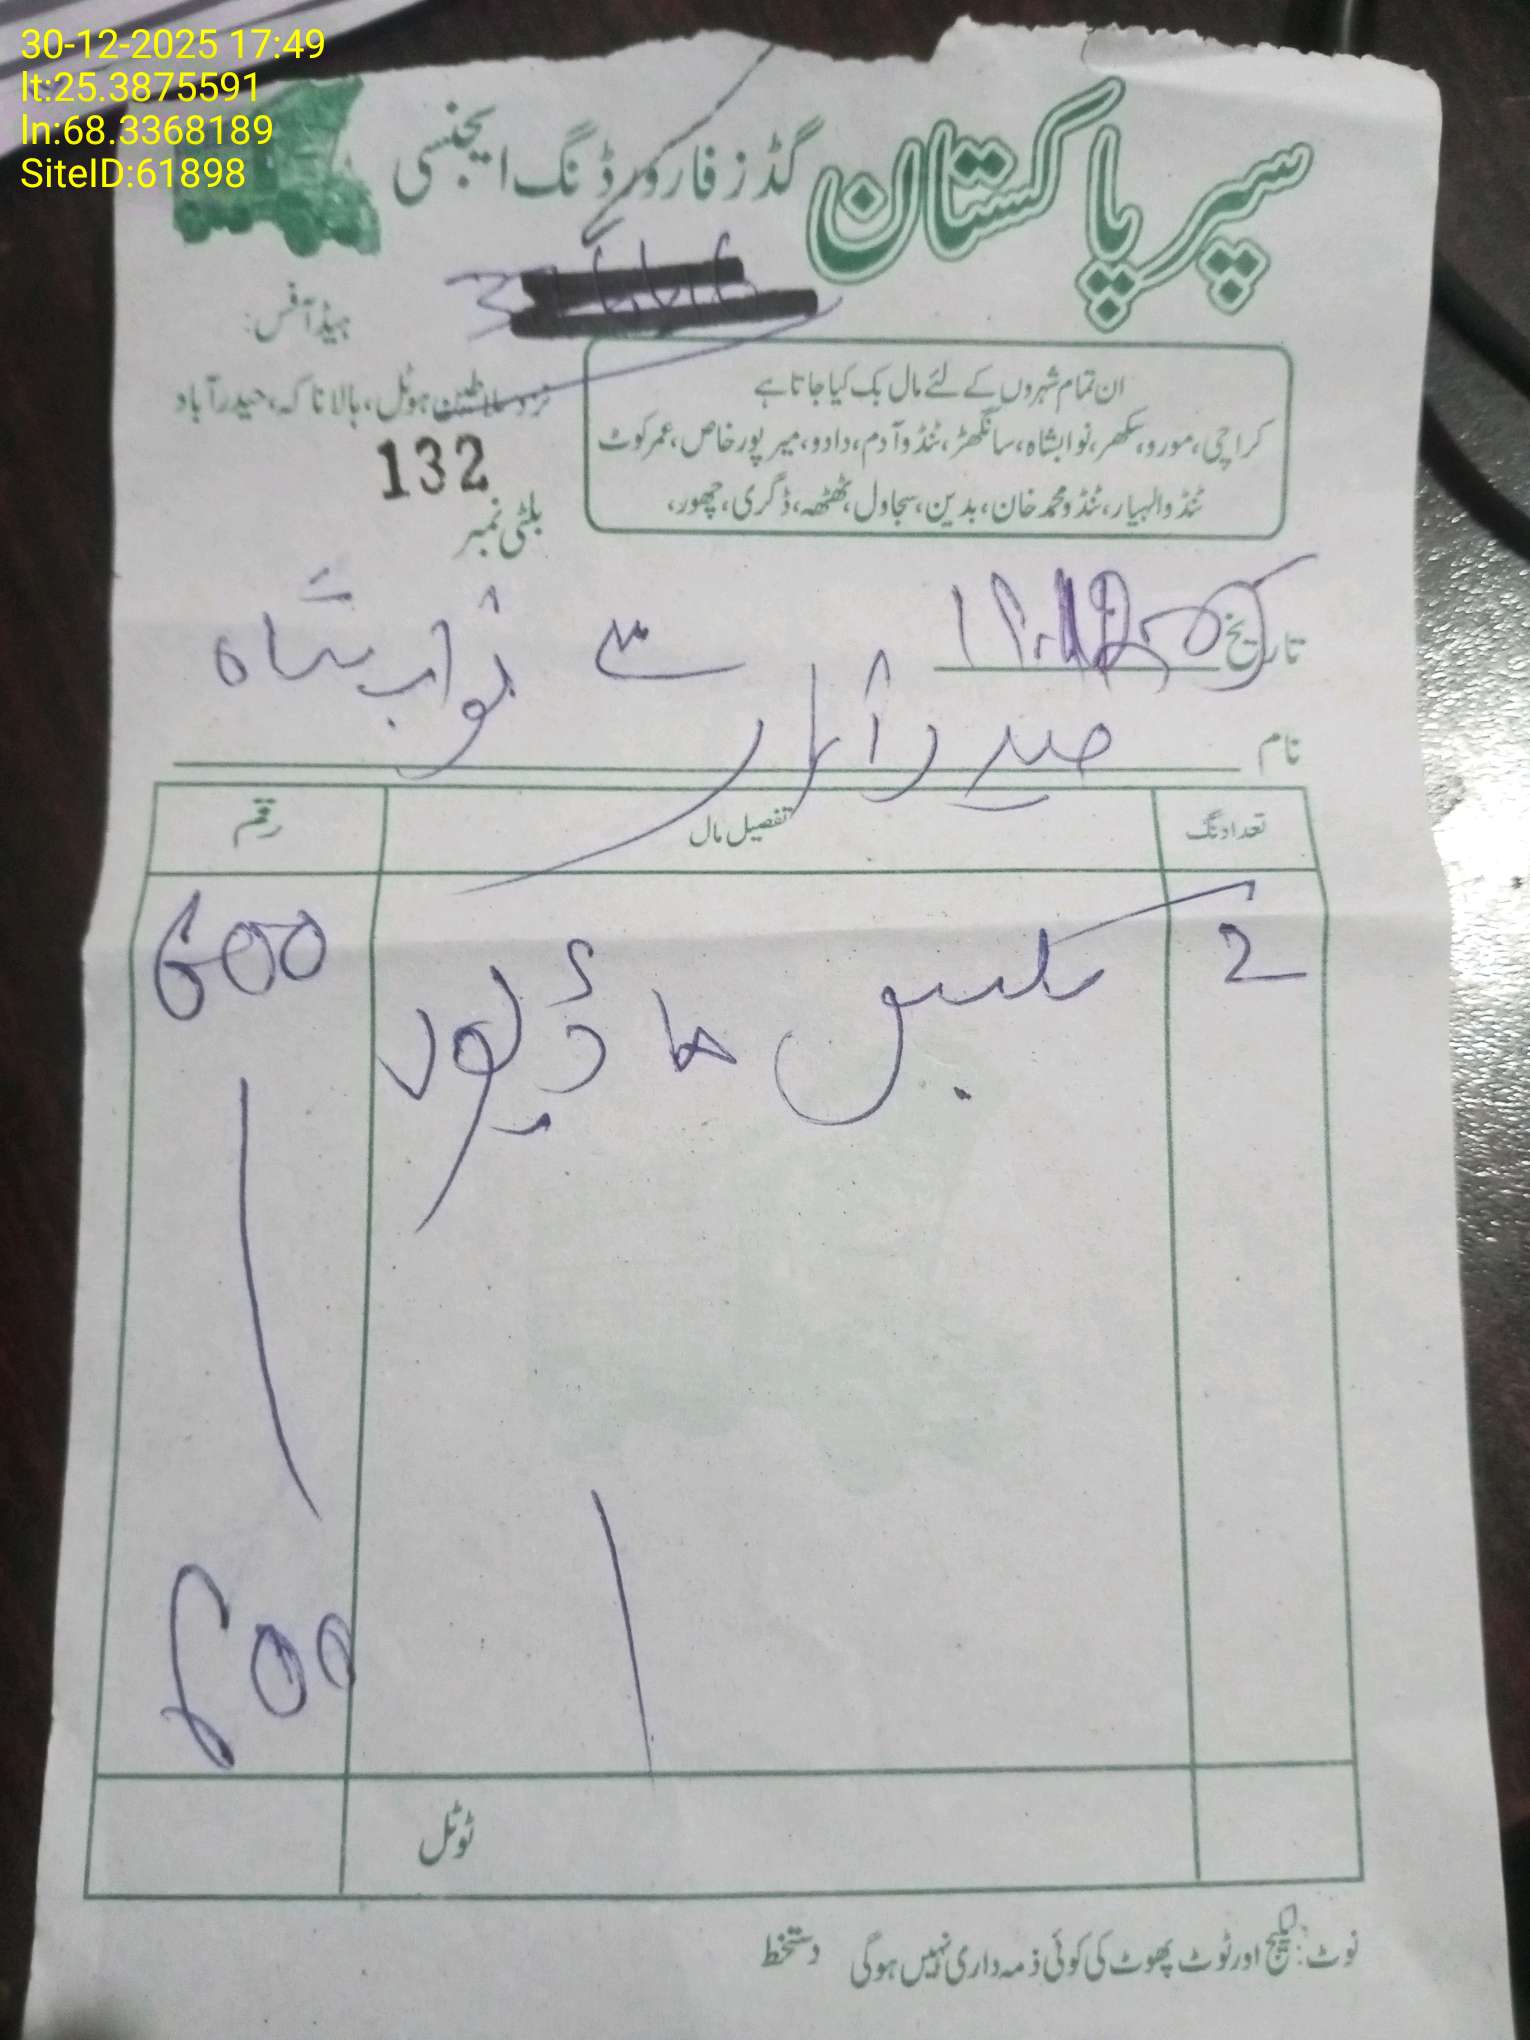 30-12-2025 17:49
lt:25.3875591
ln:68.3368189
SiteID:61898
سپر پاکستان گڈز فارورڈنگ ایجنسی
ہیڈ آفس:
نزد سلاطین ہوٹل، بالا ناکہ، حیدرآباد
ان تمام شہروں کے لئے مال بک کیا جاتا ہے
کراچی، مورو، سکھر، نوابشاہ، سانگھڑ، ٹنڈو آدم، دادو، میرپورخاص، عمرکوٹ
ٹنڈوالہیار، ٹنڈو محمد خان، بدین، سجاول، ٹھٹھہ، ڈگری، چھور،
132
بلٹی نمبر
تاریخ
نام حیدرآباد سے نواب شاہ
تعداد نگ تفصیل مال رقم
2 600
600
ٹوٹل
نوٹ: لیکیج اور ٹوٹ پھوٹ کی کوئی ذمہ داری نہیں ہوگی دستخط